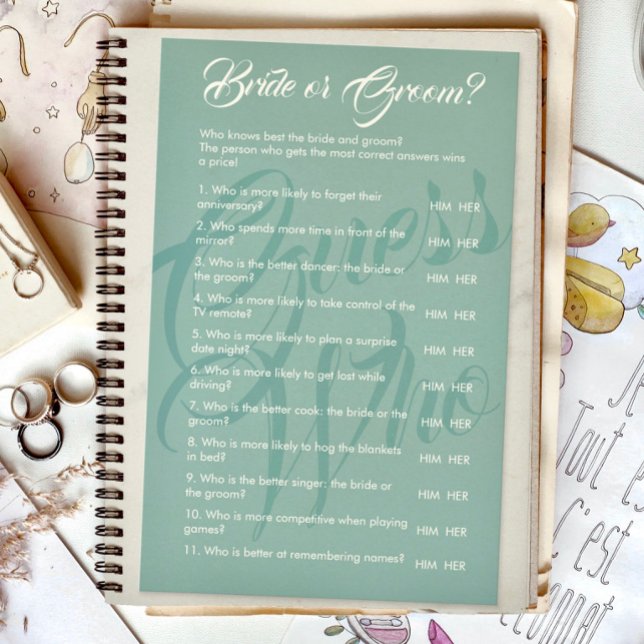 Bride or Groom?
Who knows best the bride and groom?
The person who gets the most correct answers wins
a price!
1. Who is more likely to forget their
anniversary? HIM HER
2. Who spends more time in front of the
mirror? HIM HER
3. Who is the better dancer: the bride or
the groom? HIM HER
4. Who is more likely to take control of the
TV remote? HIM HER
5. Who is more likely to plan a surprise
date night? HIM HER
6. Who is more likely to get lost while
driving? HIM HER
7. Who is the better cook: the bride or the
groom? HIM HER
8. Who is more likely to hog the blankets
in bed? HIM HER
9. Who is the better singer: the bride or
the groom? HIM HER
10. Who is more competitive when playing
games? HIM HER
11. Who is better at remembering names? HIM HER
Guess
Who
Tout es
C'est